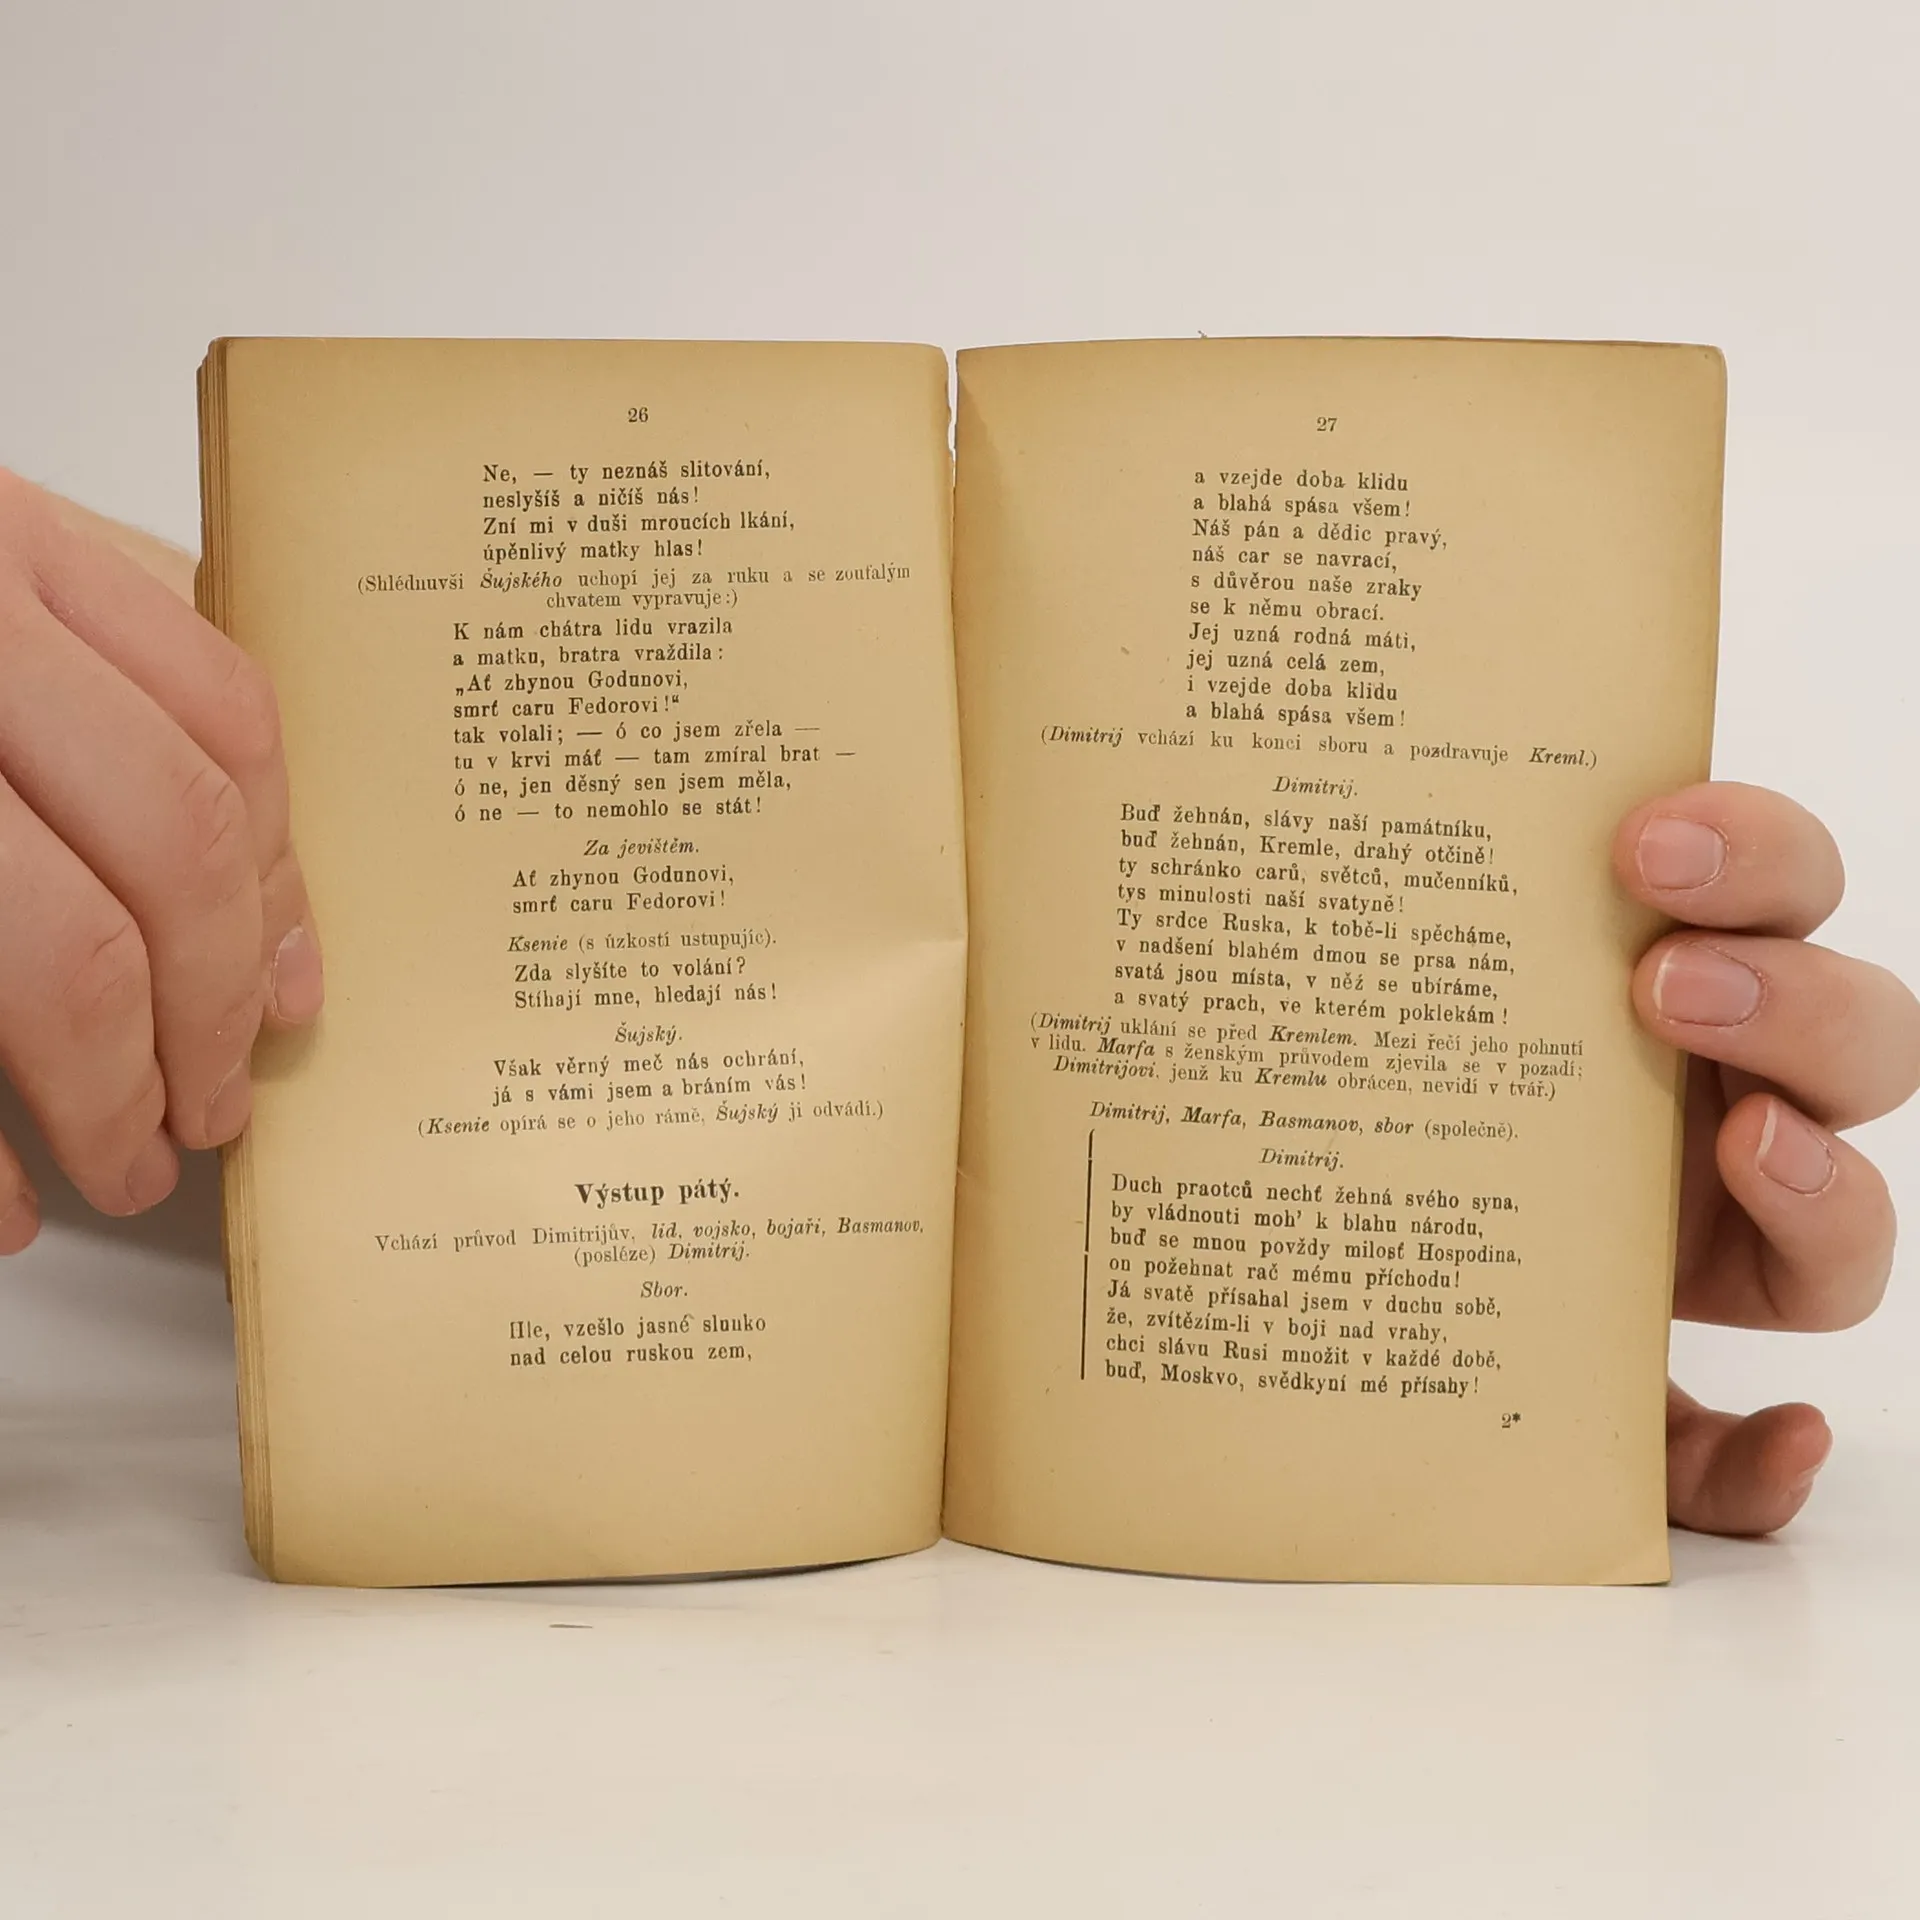 26
Ne, — ty neznáš slitování,
neslyšíš a ničíš nás!
Zní mi v duši mroucích lkání,
úpěnlivý matky hlas!
(Shlédnuvši Šujského uchopí jej za ruku a se zoufalým
chvatem vypravuje:)
K nám chátra lidu vrazila
a matku, bratra vraždila:
„Ať zhynou Godunovi,
smrť caru Fedorovi!“
tak volali; — ó co jsem zřela —
tu v krvi máť — tam zmíral brat —
ó ne, jen děsný sen jsem měla,
ó ne — to nemohlo se stát!
Za jevištěm.
Ať zhynou Godunovi,
smrť caru Fedorovi!
Ksenie (s úzkostí ustupujíc).
Zda slyšíte to volání?
Stíhají mne, hledají nás!
Šujský.
Však věrný meč nás ochrání,
já s vámi jsem a bráním vás!
(Ksenie opírá se o jeho rámě, Šujský ji odvádí.)
Výstup pátý.
Vchází průvod Dimitrijův, lid, vojsko, bojaři, Basmanov,
(posléze) Dimitrij.
Sbor.
Hle, vzešlo jasné slunko
nad celou ruskou zem,
27
a vzejde doba klidu
a blahá spása všem!
Náš pán a dědic pravý,
náš car se navrací,
s důvěrou naše zraky
se k němu obrací.
Jej uzná rodná máti,
jej uzná celá zem,
i vzejde doba klidu
a blahá spása všem!
(Dimitrij vchází ku konci sboru a pozdravuje Kreml.)
Dimitrij.
Buď žehnán, slávy naší památníku,
buď žehnán, Kremle, drahý otčině!
ty schránko carů, světců, mučenníků,
tys minulosti naší svatyně!
Ty srdce Ruska, k tobě-li spěcháme,
v nadšení blahém dmou se prsa nám,
svatá jsou místa, v něž se ubíráme,
a svatý prach, ve kterém poklekám!
(Dimitrij uklání se před Kremlem. Mezi řečí jeho pohnutí
v lidu. Marfa s ženským průvodem zjevila se v pozadí;
Dimitrijovi, jenž ku Kremlu obrácen, nevidí v tvář.)
Dimitrij, Marfa, Basmanov, sbor (společně).
Dimitrij.
Duch praotců nechť žehná svého syna,
by vládnouti moh' k blahu národu,
buď se mnou povždy milosť Hospodina,
on požehnat rač mému příchodu!
Já svatě přísahal jsem v duchu sobě,
že, zvítězím-li v boji nad vrahy,
chci slávu Rusi množit v každé době,
buď, Moskvo, svědkyní mé přísahy!
2*